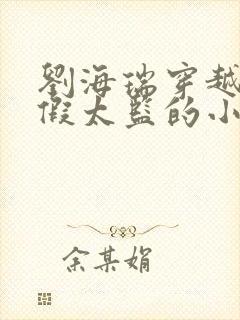 劉海瑞穿越
假太監的小
余某娟